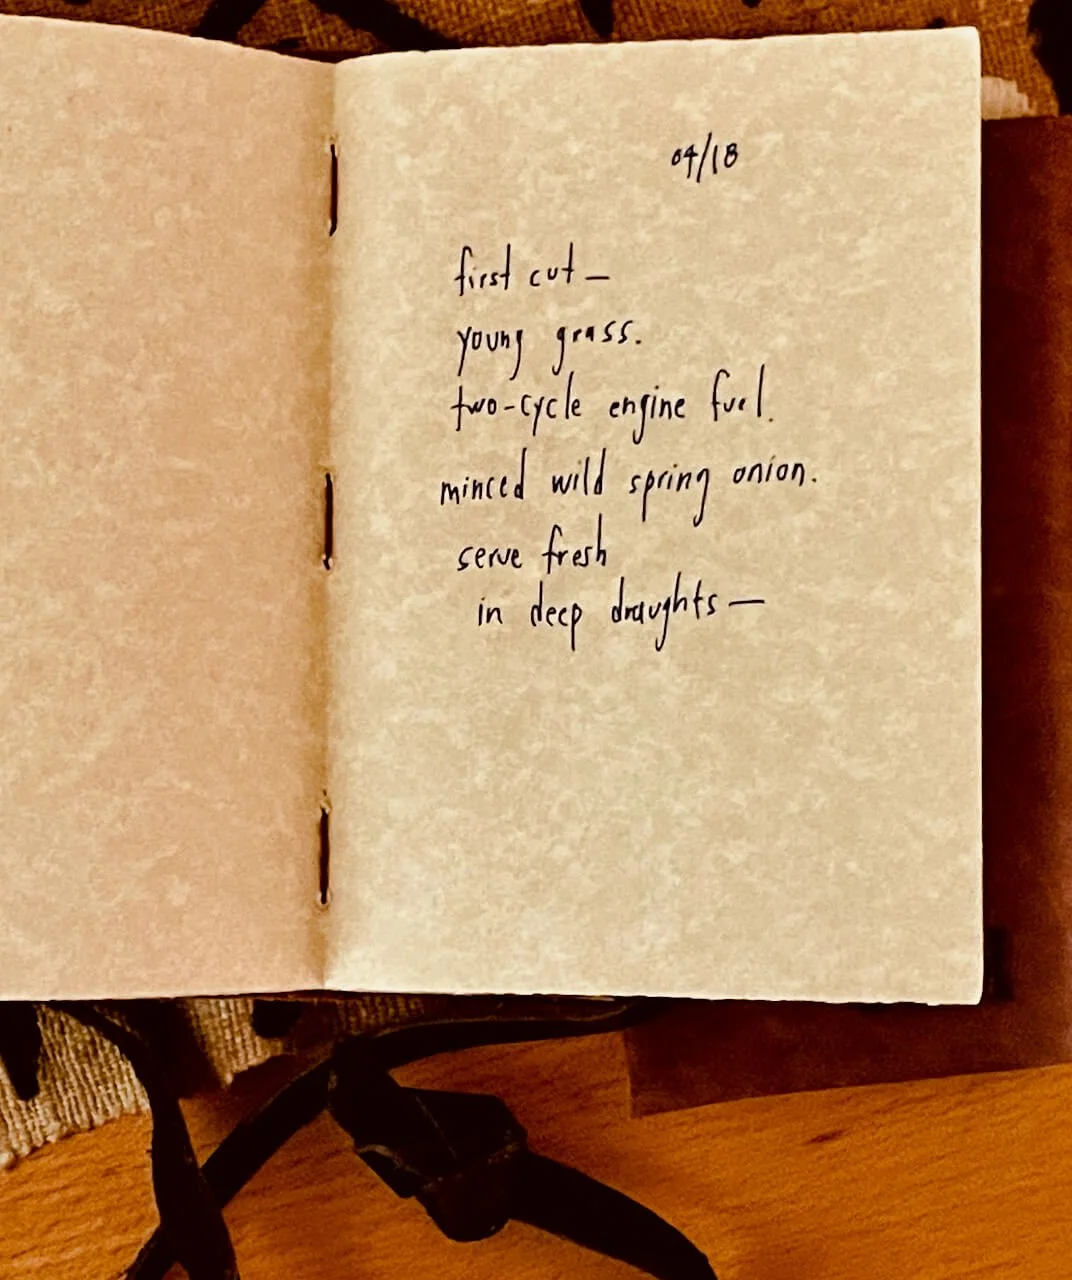 04/18
first cut —
young grass.
two-cycle engine fuel.
minced wild spring onion.
serve fresh
in deep draughts —